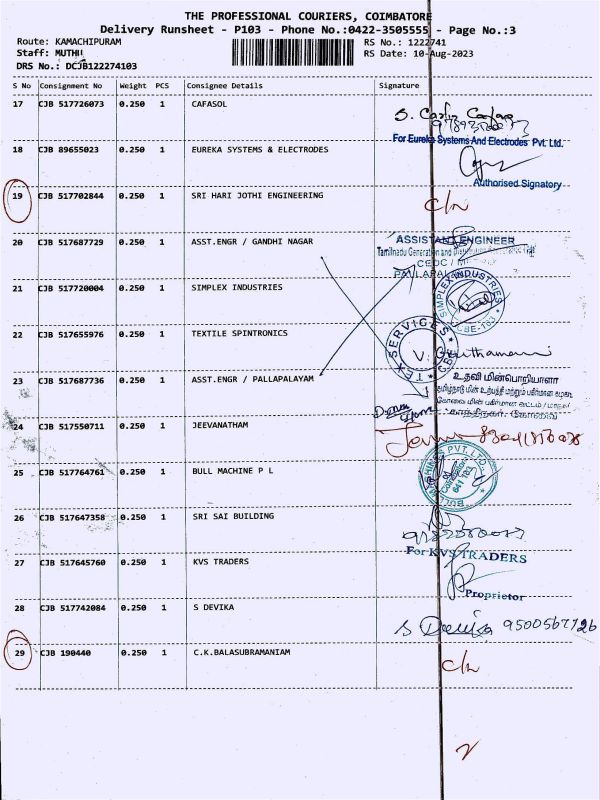 THE PROFESSIONAL COURIERS, COIMBATORE
Delivery Runsheet - P103 - Phone No.:0422-3505555 - Page No.:3
Route: KAMACHIPURAM
RS No.: 1222741
Staff: MUTHU
RS Date: 10-Aug-2023
DRS No.: DCJB122274103
S No Consignment No Weight PCS Consignee Details Signature
17 CJB 517726073 0.250 1 CAFASOL
For Eureka Systems And Electrodes Pvt. Ltd.
18 CJB 89655023 0.250 1 EUREKA SYSTEMS & ELECTRODES
Authorised Signatory
19 CJB 517702844 0.250 1 SRI HARI JOTHI ENGINEERING c/n
20 CJB 517687729 0.250 1 ASST.ENGR / GANDHI NAGAR ASSISTANT ENGINEER
Tamilnadu Generation and
21 CJB 517720004 0.250 1 SIMPLEX INDUSTRIES SIMPLEX INDUSTRIES
22 CJB 517655976 0.250 1 TEXTILE SPINTRONICS TEX SERVICES
23 CJB 517687736 0.250 1 ASST.ENGR / PALLAPALAYAM உதவி மின்பொறியாளர்
24 CJB 517550711 0.250 1 JEEVANATHAM
25 CJB 517764761 0.250 1 BULL MACHINE P L BULL MACHINES PVT. LTD. Coimbatore 641 103
26 CJB 517647358 0.250 1 SRI SAI BUILDING
For KVS TRADERS
27 CJB 517645760 0.250 1 KVS TRADERS
Proprietor
28 CJB 517742084 0.250 1 S DEVIKA S Devika 9500567726
29 CJB 190440 0.250 1 C.K.BALASUBRAMANIAM c/n
2